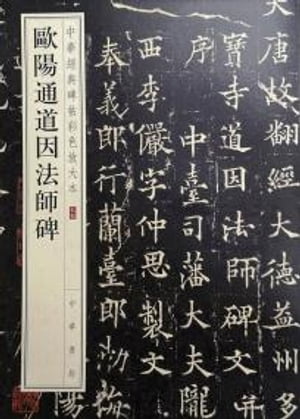 歐陽通道因法師碑
中華經典碑帖彩色放大本
中華書局
大唐故翻經大德益州多
寶寺道因法師碑文
序 中臺司藩大夫隴
西李儼字仲思製文
奉義郎行蘭臺郎渤海